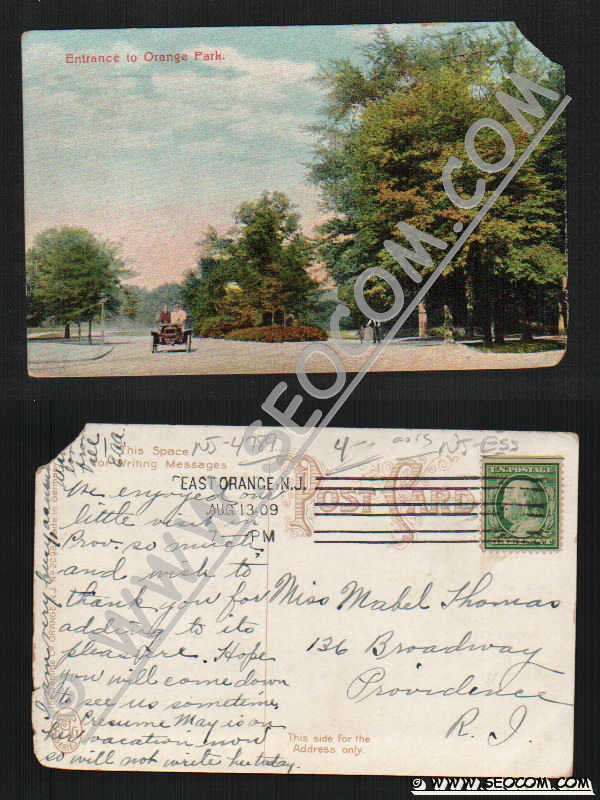 Entrance to Orange Park.
WWW.SEOCOM.COM
This Space
For Writing Messages
NJ-4989
4--
NJ-ESS
EAST ORANGE, N.J.
AUG 13 09
7-PM
POST CARD
U.S. POSTAGE
We enjoyed our
little visit in
Prov. so much
and wish to
thank you for
adding to its
pleasure. Hope
you will come down
to see us sometime
Presume May is on
her vacation now
so will not write her today.
I am very busy
Miss Mabel Thomas
136 Broadway
Providence
R. I.
This side for the
Address only.
© WWW.SEOCOM.COM
© WWW.SEOCOM.COM